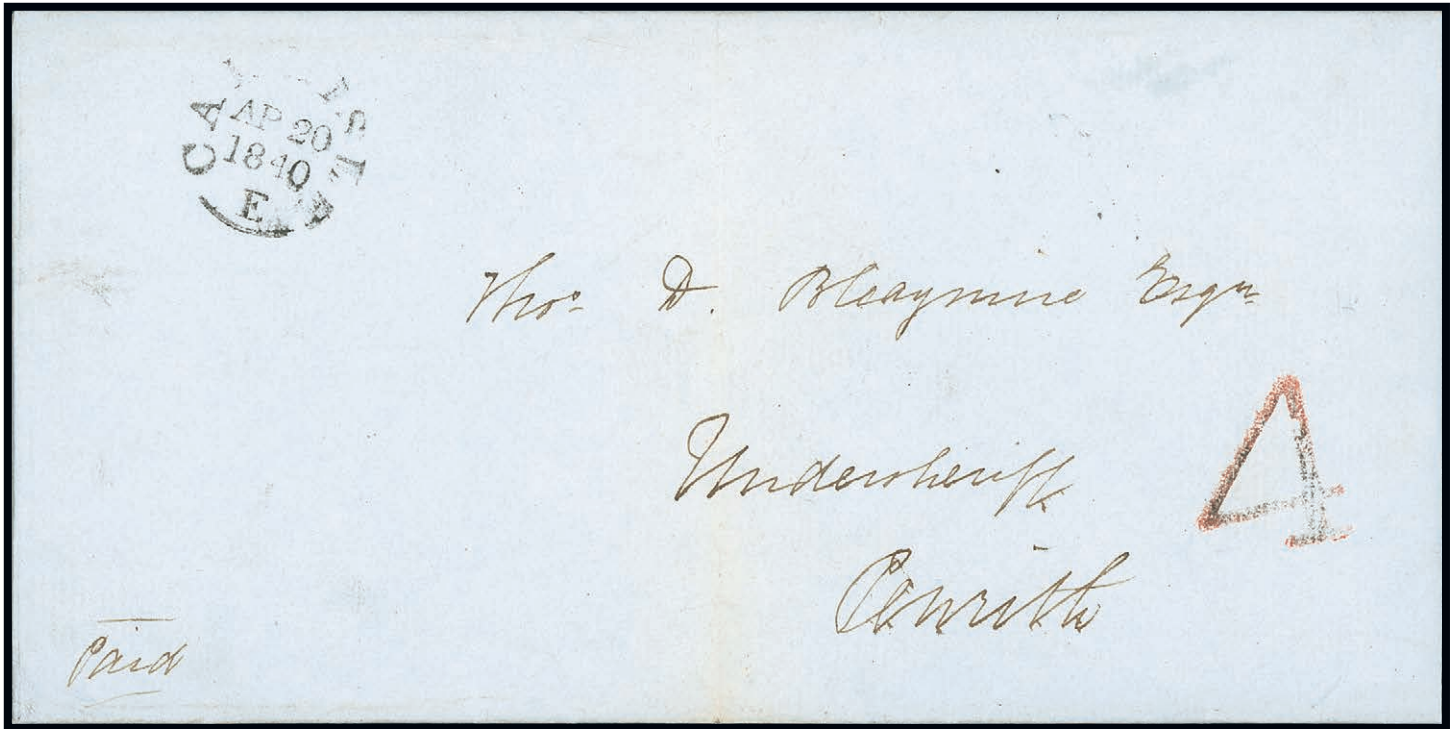 CARLISLE
AP 20
1840
E
Thos. D. Bleaymire Esqre.
Undersheriff
4
Penrith
Paid